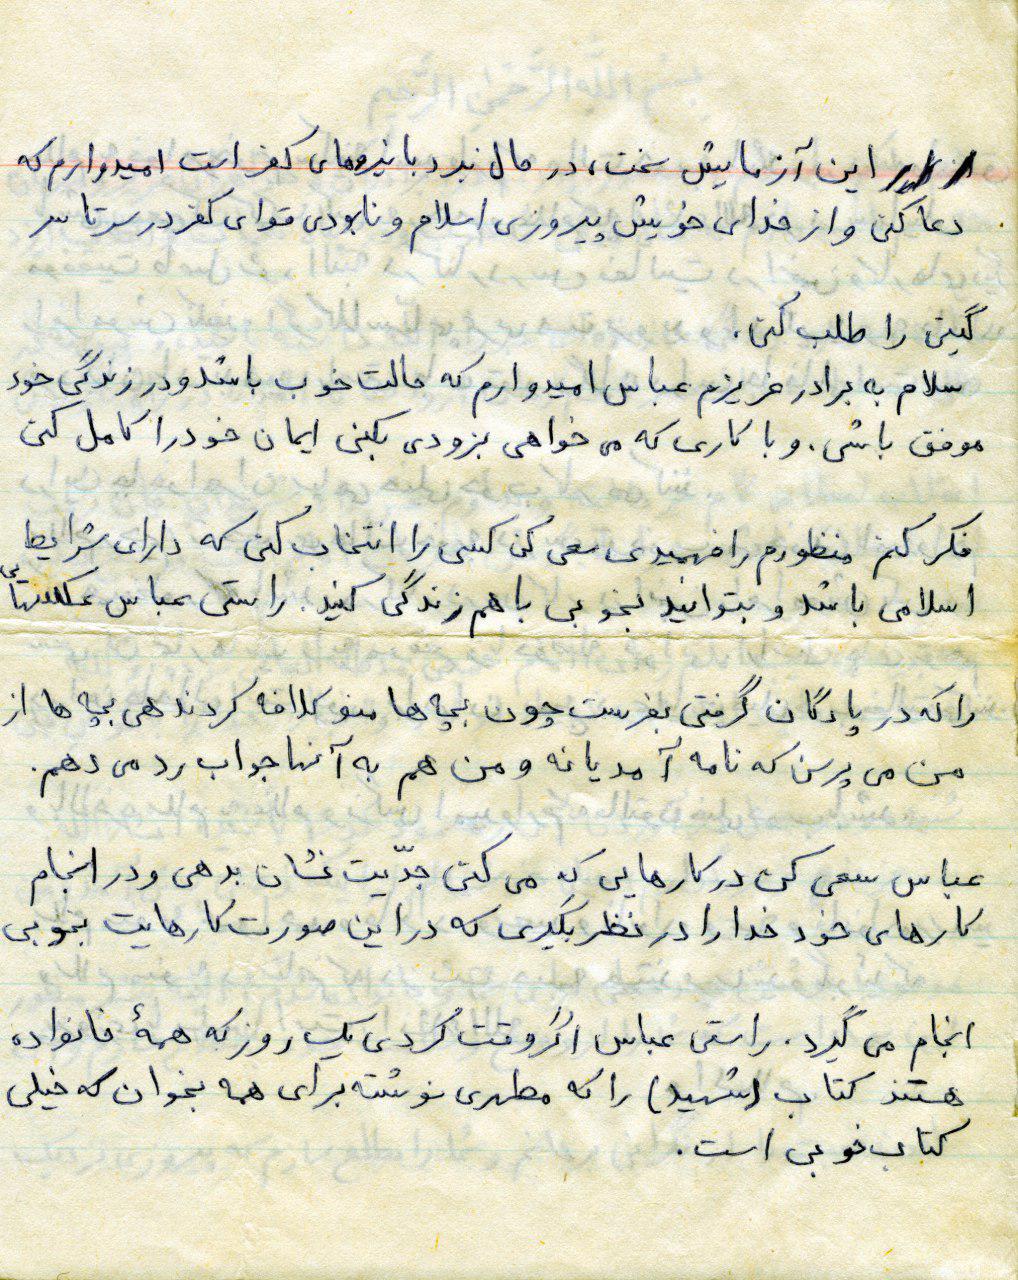 این آزمایش سخت، در حال نبرد با نیروهای کفر است امیدوارم که
دعا کنی و از خدای خویش پیروزی اسلام و نابودی قوای کفر در سرتاسر
گیتی را طلب کنی.
سلام به برادر عزیزم عباس امیدوارم که حالت خوب باشد و در زندگی خود
موفق باشی. و با کاری که می خواهی بزودی بکنی ایمان خود را کامل کنی
فکر کنم منظورم را فهمیدی سعی کن کسی را انتخاب کنی که دارای شرایط
اسلامی باشد و بتوانید بخوبی با هم زندگی کنید. راستی عباس عکسهائی
را که در پادگان گرفتی بفرست چون بچه ها منو کلافه کردند هی بچه ها از
من می پرسن که نامه آمد یا نه و من هم به آنها جواب رد می دهم.
عباس سعی کن در کارهایی که می کنی جدّیت نشان بدهی و در انجام
کارهای خود خدا را در نظر بگیری که در این صورت کارهایت بخوبی
انجام می گیرد. راستی عباس اگر وقت کردی یک روز که همهٔ خانواده
هستند کتاب (شهید) را که مطهری نوشته برای همه بخوان که خیلی
کتاب خوبی است.